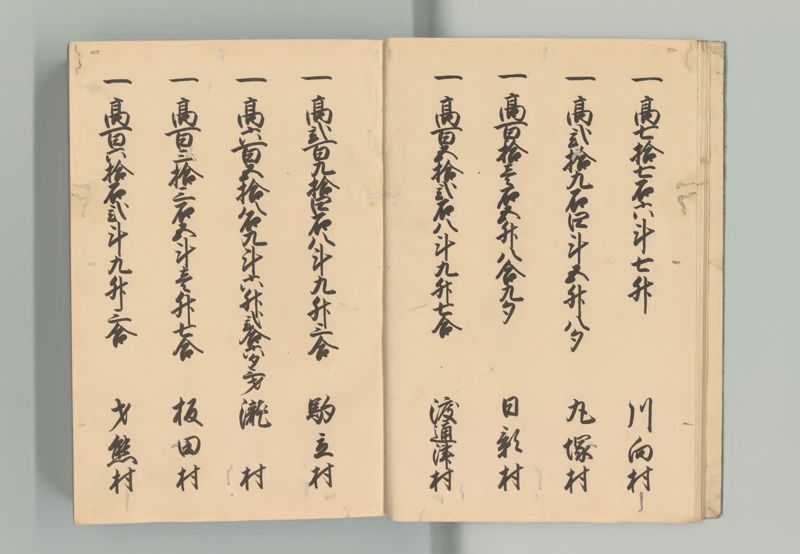 一 高七拾七石六斗七升 川向村
一 高弐拾九石四斗五升八夕 丸塚村
一 高百拾壱石五升八合九夕 日影村
一 高百五拾弐石八斗九升七合 渡通津村
一 高弐百九拾四石八斗九升三合 駒立村
一 高六百五拾八石九斗六升弐合六夕 滝村
一 高百三拾三石五斗壱升七合 板田村
一 高百六拾石弐斗九升三合 才熊村